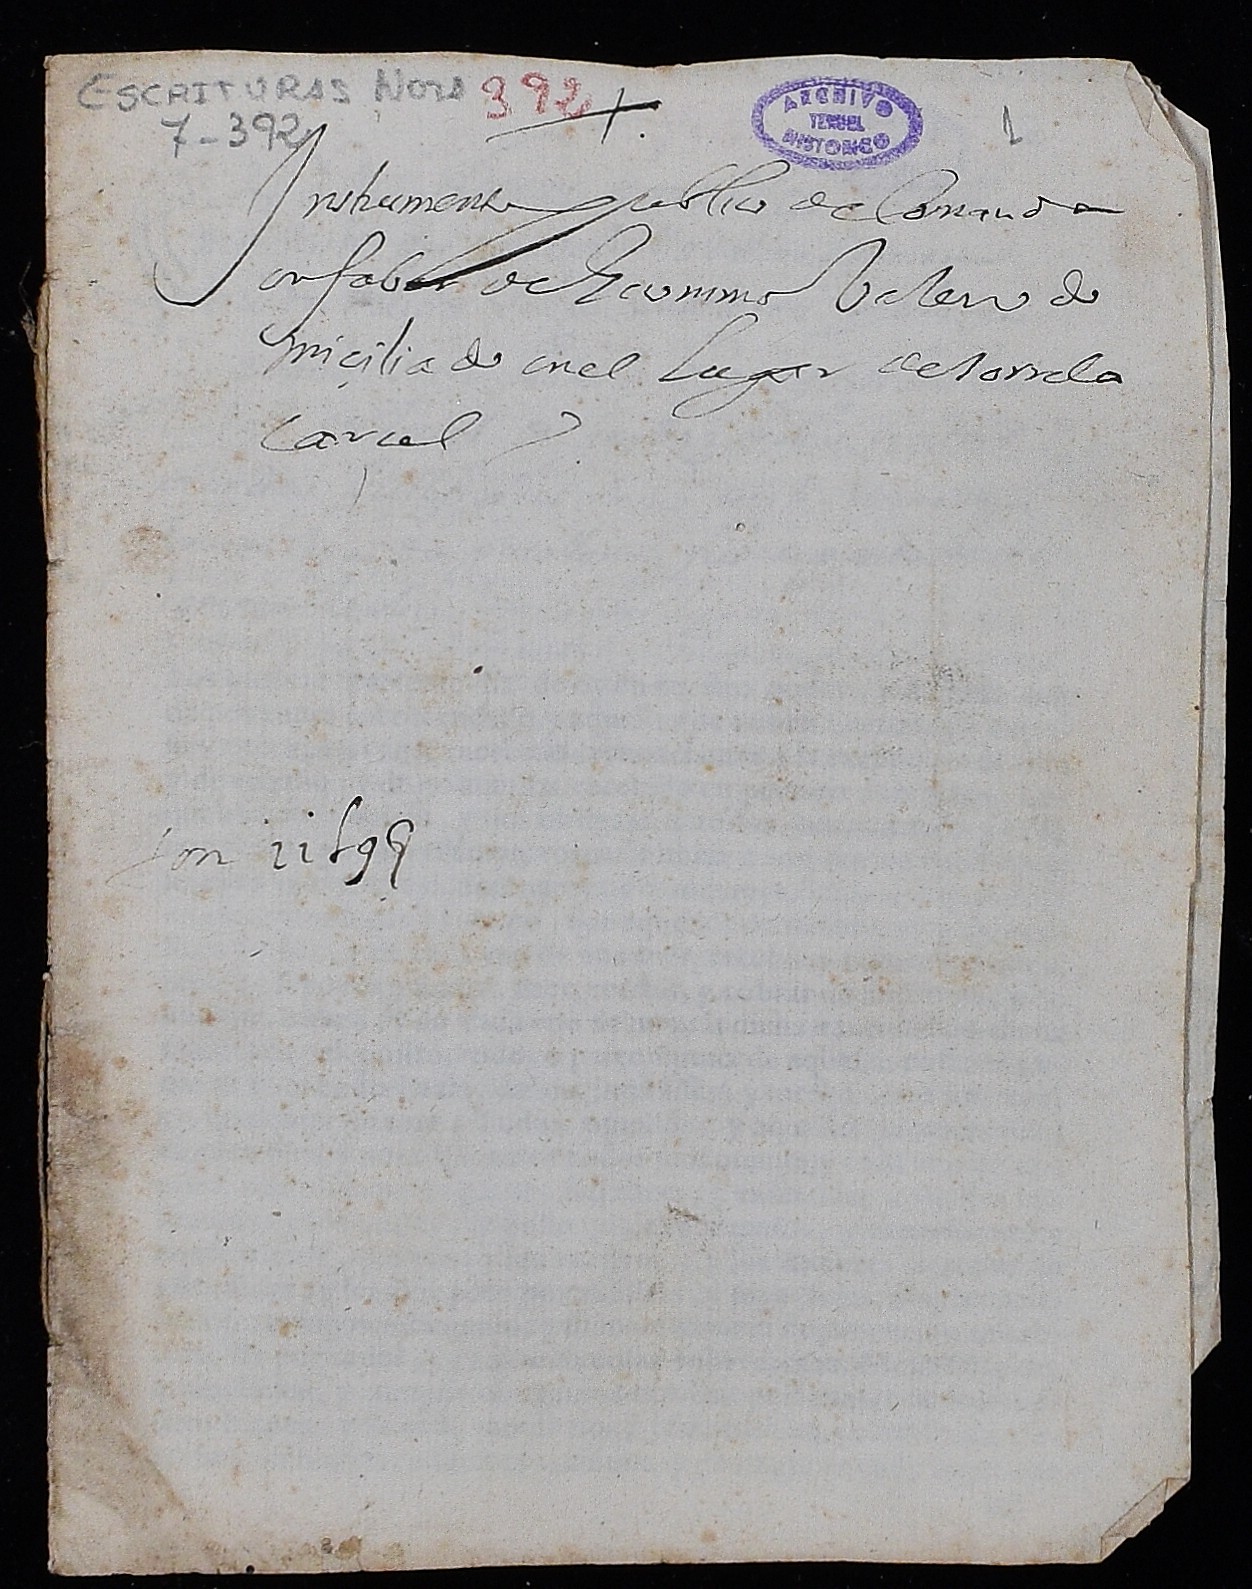 ESCRITURAS NOTS 392
7-392
ARCHIVO
TERUEL
HISTORICO
1
Instrumento publico de Comanda
en fabor de Geronimo Valero do
miçiliado en el Lugar de torrela
carcel
son 22 s 9 d